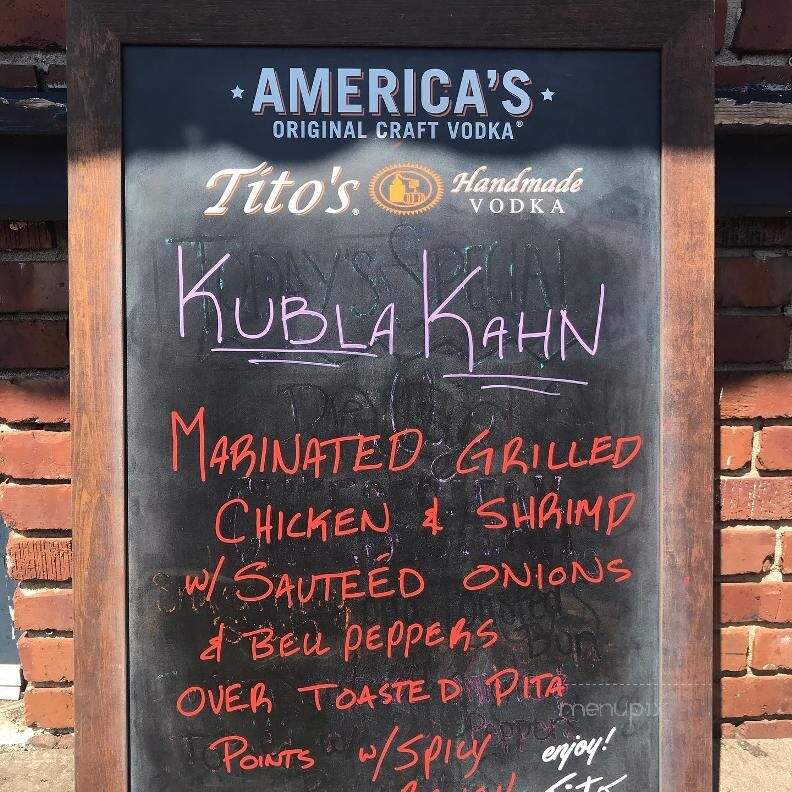 AMERICA'S
ORIGINAL CRAFT VODKA®
Tito's® Handmade
VODKA
TODAY'S SPECIAL
KUBLA KAHN
MARINATED GRILLED
CHICKEN & SHRIMP
W/ SAUTEÉD ONIONS
& BELL PEPPERS
Bun
OVER TOASTED PITA
menupix
POINTS W/ SPICY
enjoy!
Tito